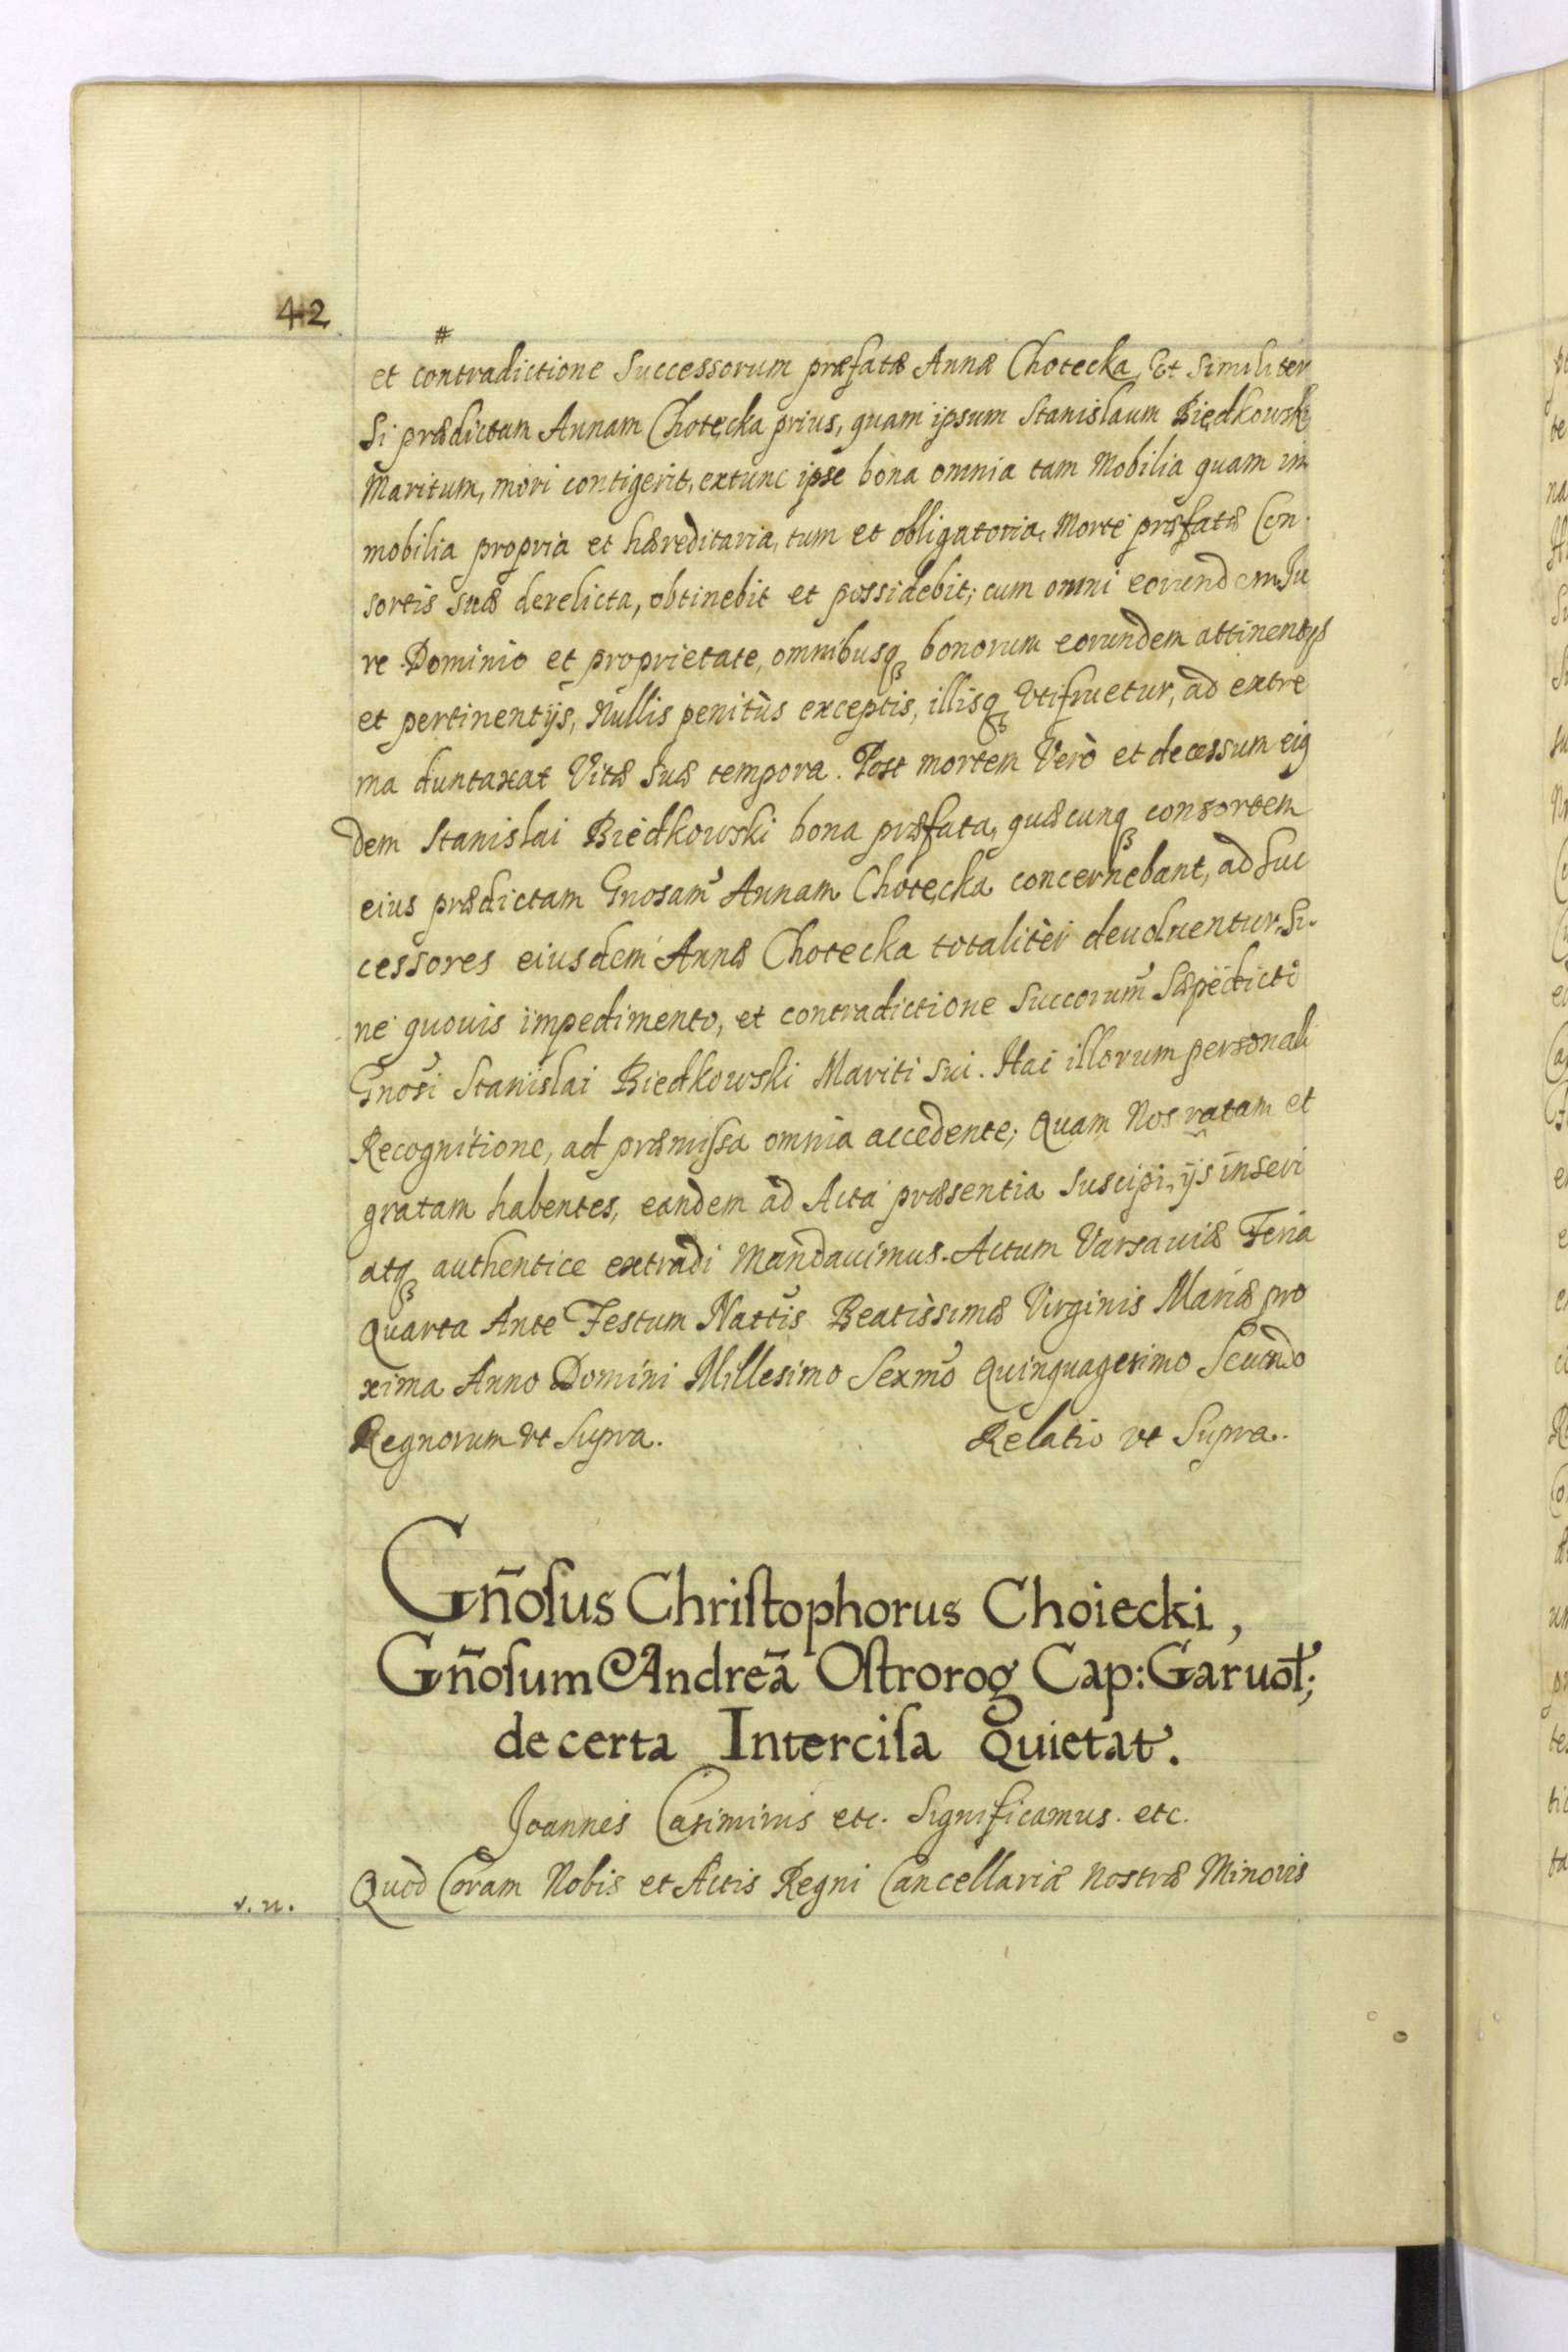 42
#
et contradictione Successorum præfatæ Annæ Chotecka, Et Similiter
Si prædictam Annam Chotecka prius, quam ipsum Stanislaum Biedkowski
Maritum, mori contigerit, extunc ipse bona omnia tam Mobilia quam im
mobilia propria et hæreditaria, tum et obligatoria, Morte præfatæ Con-
sortis suæ derelicta, obtinebit et possidebit; cum omni eorundem Ju
re Dominio et proprietate, omnibusq bonorum eorundem attinentys
et pertinentÿs, Nullis penitùs exceptis, illisq Vtifruetur, ad extre
ma duntaxat Vitæ Suæ tempora. Post mortem Verò et decessum eiq
dem Stanislai Biedkowski bona præfata, quæcunq consortem
eius prædictam Gnosam Annam Chotecka concernebant, ad Suc
cessores eiusdem Annæ Chotecka totalitèr deuoluentur. Si-
ne quouis impedimento, et contradictione Succorum Sæpedicti
Gnosi Stanislai Biedkowski Mariti sui. Hac illorum personali
Recognitione, ad præmissa omnia accedente; Quam Nos ratam et
gratam habentes, eandem ad Acta præsentia suscipi, ÿs inseri
atq authentice extradi Mandauimus. Actum Varsauiæ Feria
Quarta Ante Festum Nattis Beatissimæ Virginis Mariæ pro
xima Anno Domini Millesimo Sexmo Quinquagesimo Scundo
Regnorum vt Supra. Relatio vt Supra.
Gñosus Christophorus Choiecki,
Gñosum Andreã Ostrorog Cap: Garuoł;
de certa Intercisa Quietat.
Joannes Casimirus etc. Significamus. etc.
Quod Coram Nobis et Actis Regni Cancellariæ Nostræ Minoris